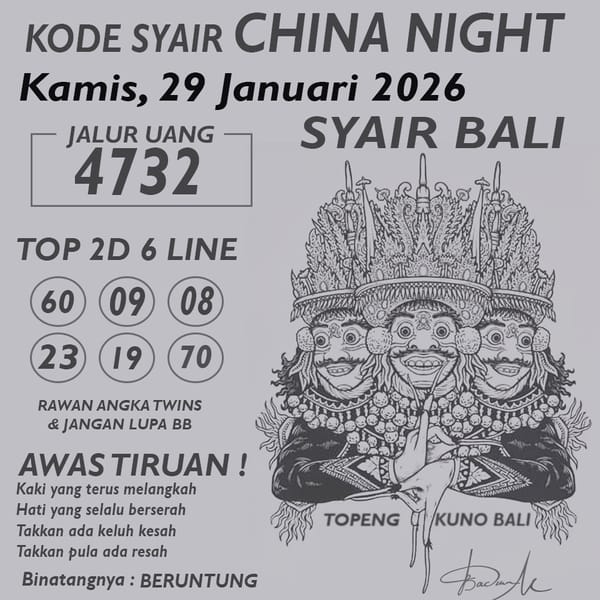 KODE SYAIR CHINA NIGHT
Kamis, 29 Januari 2026
JALUR UANG
4732
SYAIR BALI
TOP 2D 6 LINE
60 09 08
23 19 70
RAWAN ANGKA TWINS
& JANGAN LUPA BB
AWAS TIRUAN !
Kaki yang terus melangkah
Hati yang selalu berserah
Takkan ada keluh kesah
Takkan pula ada resah
Binatangnya : BERUNTUNG
TOPENG KUNO BALI